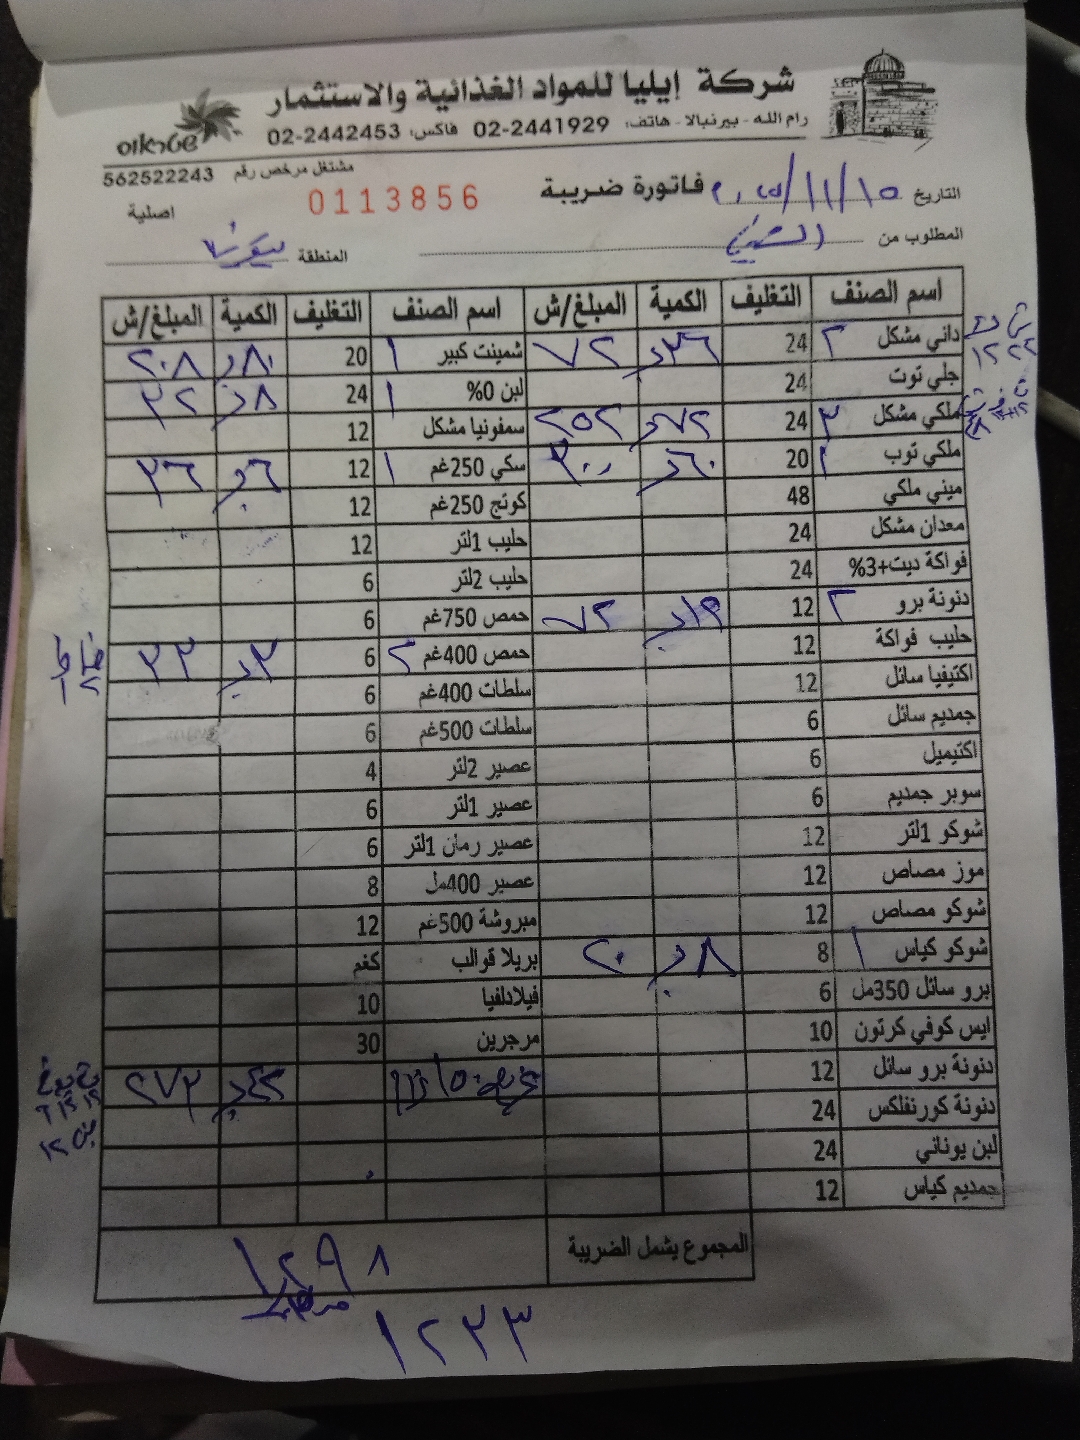 شركة إيليا للمواد الغذائية والاستثمار
رام الله - بيرنبالا - هاتف: 02-2441929 فاكس: 02-2442453
שטראוס
مشتغل مرخص رقم 562522243
التاريخ ١٥/١١/٢٠٢٥ فاتورة ضريبة 0113856 اصلية
المطلوب من المنطقة
اسم الصنف التغليف الكمية المبلغ/ش اسم الصنف التغليف الكمية المبلغ/ش
داني مشكل ٢ 24 ٣٦ ٧٢ شمينت كبير ١ 20 ٨٠ ٢٠٨
جلي توت 24 لبن 0% ١ 24 ٨ ٣٢
ملكي مشكل ٣ 24 ٧٢ ٢٥٢ سمفونيا مشكل 12
ملكي توب 20 ٦٠ ٣٠٠ سكي 250غم ١ 12 ٦ ٣٦
ميني ملكي 48 كوتج 250غم 12
معدان مشكل 24 حليب 1لتر 12
فواكة ديت+3% 24 حليب 2لتر 6
دنونة برو ٢ 12 ٧٢ حمص 750غم 6
حليب فواكة 12 حمص 400غم ٢ 6 ٣ ٣٣
اكتيفيا سائل 12 سلطات 400غم 6
جمديم سائل 6 سلطات 500غم 6
اكتيميل 6 عصير 2لتر 4
سوبر جمديم 6 عصير 1لتر 6
شوكو 1لتر 12 عصير رمان 1لتر 6
موز مصاص 12 عصير 400مل 8
شوكو مصاص 12 مبروشة 500غم 12
شوكو كياس ١ 8 ٨ ٢٠ بريلا قوالب كغم
برو سائل 350مل 6 فيلادلفيا 10
ايس كوفي كرتون 10 مرجرين 30
دنونة برو سائل 12 ٤٢ ٢٧٣
دنونة كورنفلكس 24
لبن يوناني 24
جمديم كياس 12
المجموع يشمل الضريبة ١٢٩٨
١٢٣٣